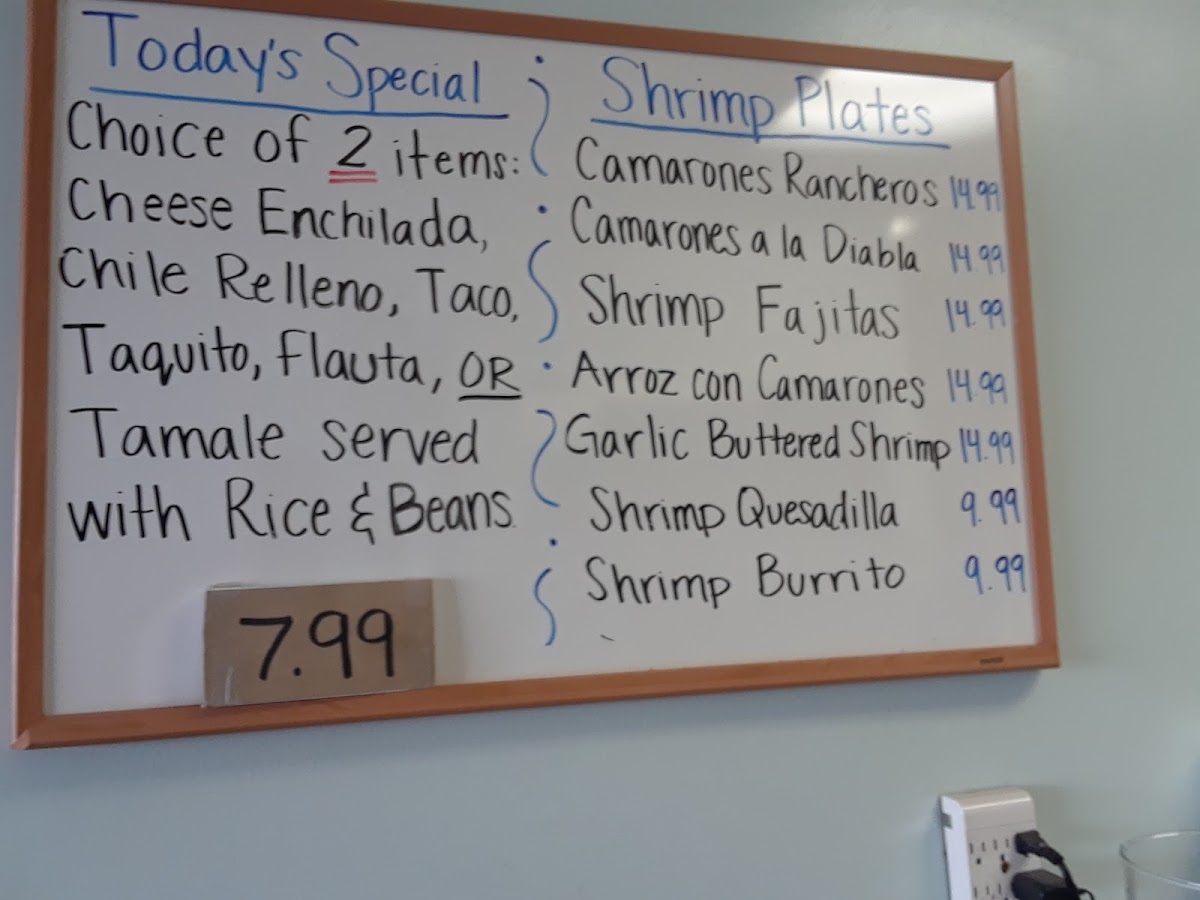 Today's Special
Choice of 2 items:
Cheese Enchilada,
Chile Relleno, Taco,
Taquito, Flauta, OR
Tamale served
with Rice & Beans.
7.99
Shrimp Plates
Camarones Rancheros 14.99
Camarones a la Diabla 14.99
Shrimp Fajitas 14.99
Arroz con Camarones 14.99
Garlic Buttered Shrimp 14.99
Shrimp Quesadilla 9.99
Shrimp Burrito 9.99